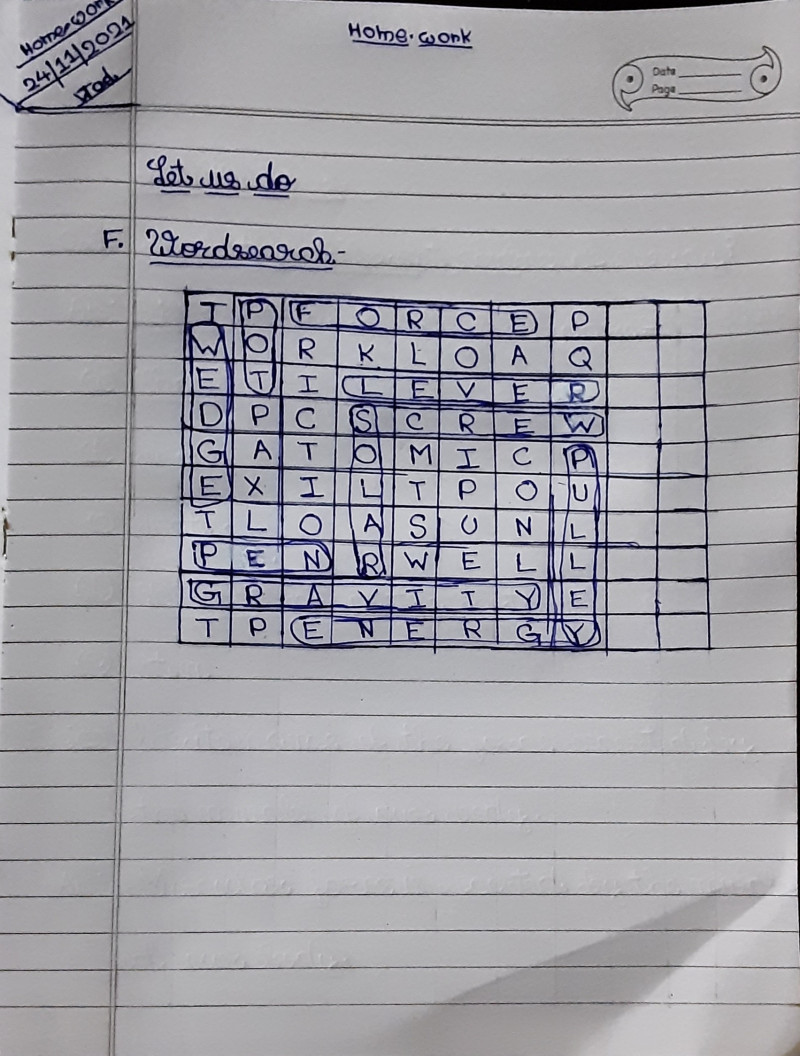 Home.work
24/11/2021
Home.work
Date
Page
Let us do
F. Wordsearch-
I P F O R C E P
W O R K L O A Q
E T I L E V E R
D P C S C R E W
G A T O M I C P
E X I L T P O U
T L O A S U N L
P E N R W E L L
G R A V I T Y E
T P E N E R G Y